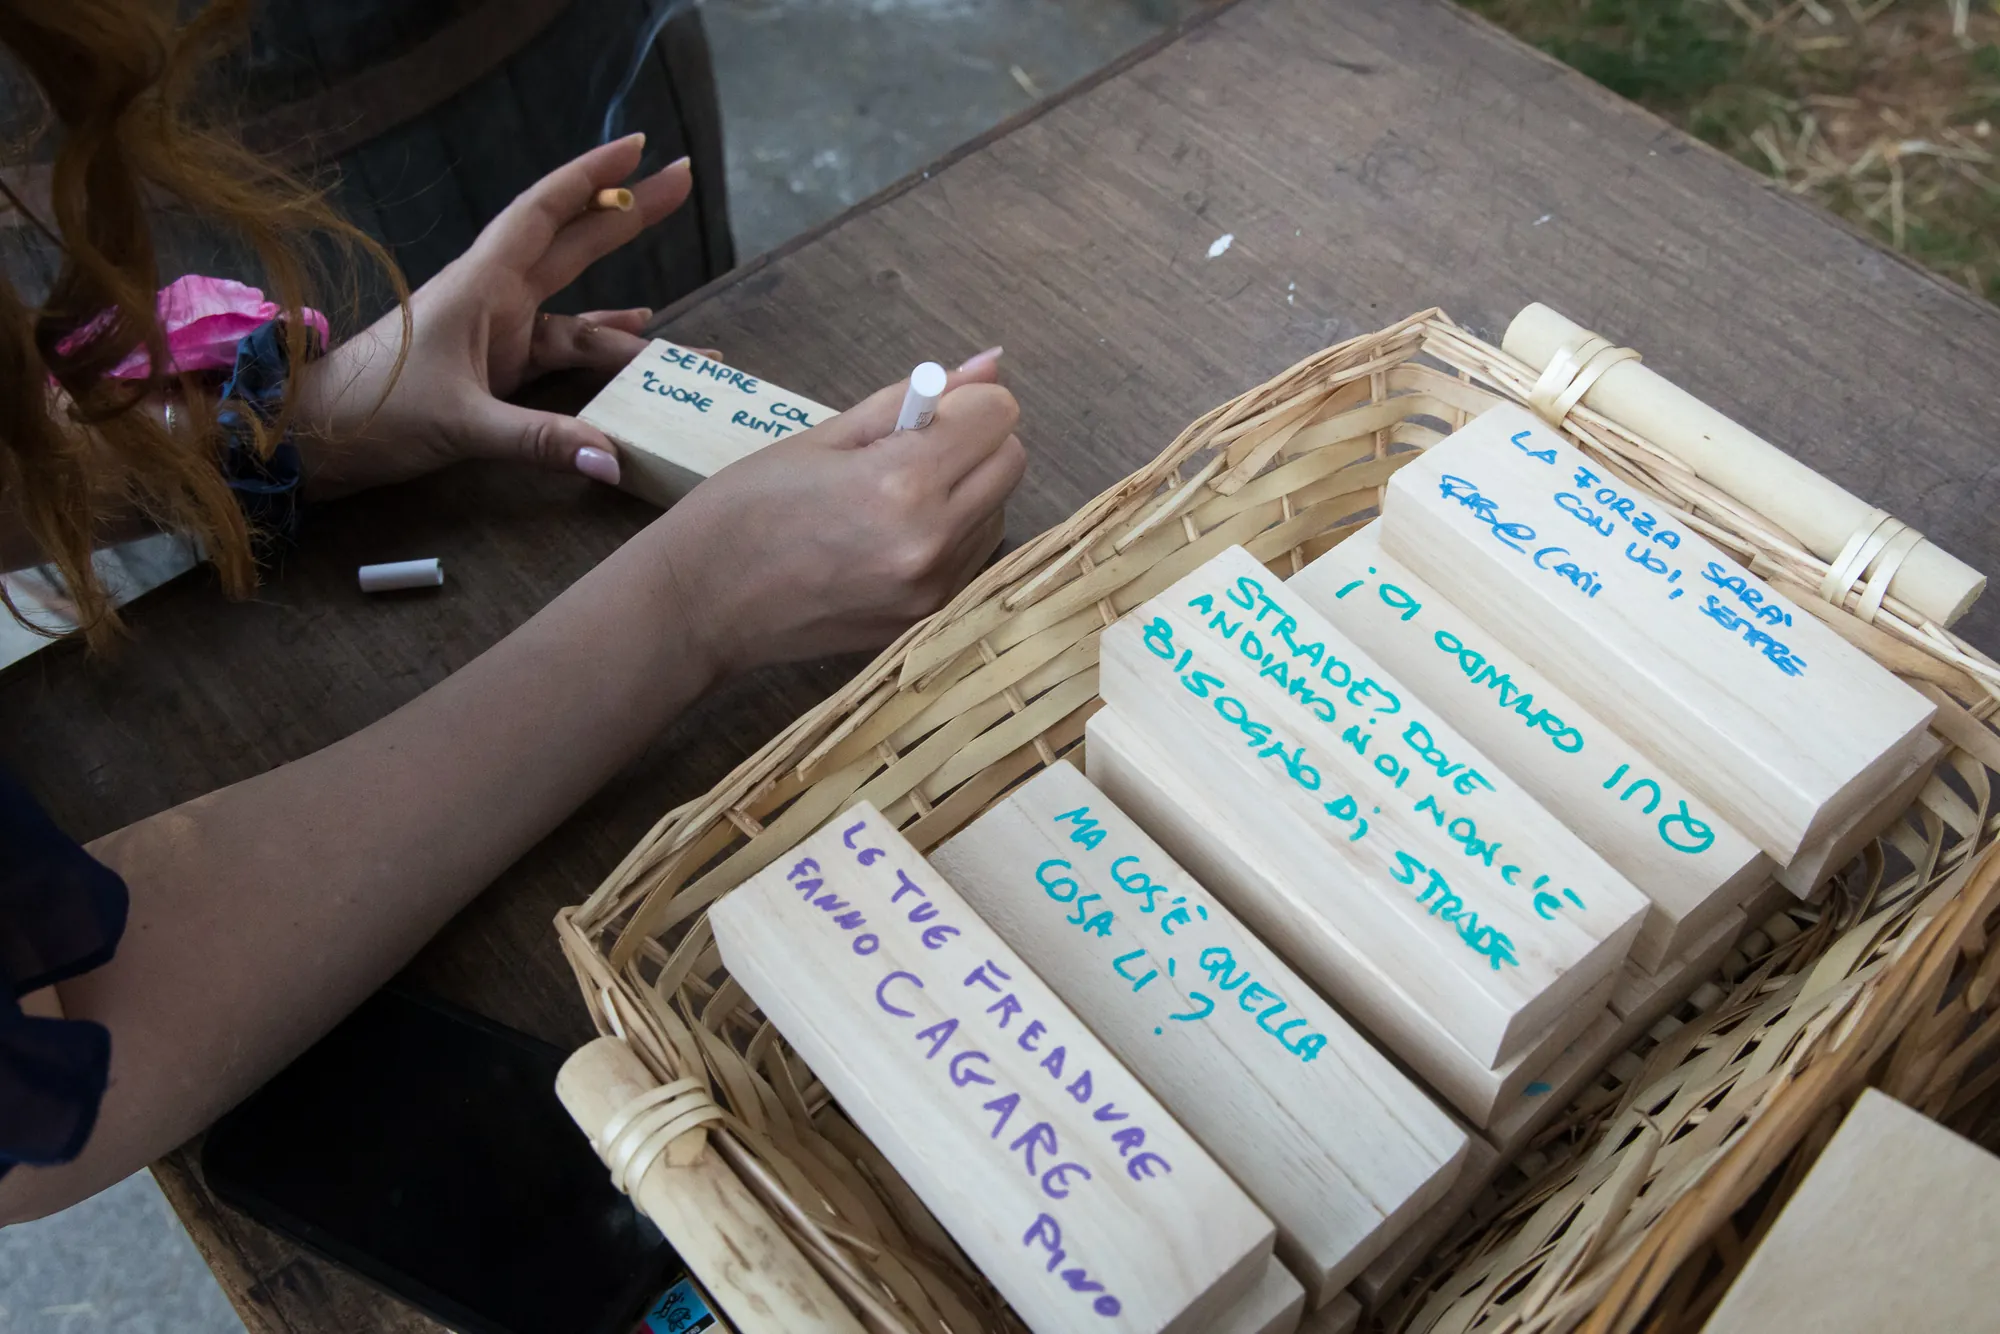 SEMPRE COL
"CUORE RINT
LA FORZA SARA'
CON VOI, SEMPRE
QUI COMANDO IO!
STRADE? DOVE
ANDIAMO NOI NON C'È
BISOGNO DI STRADE
MA COS'È QUELLA
COSA LÌ?
LE TUE FREADVRE
FANNO CAGARE
PINO